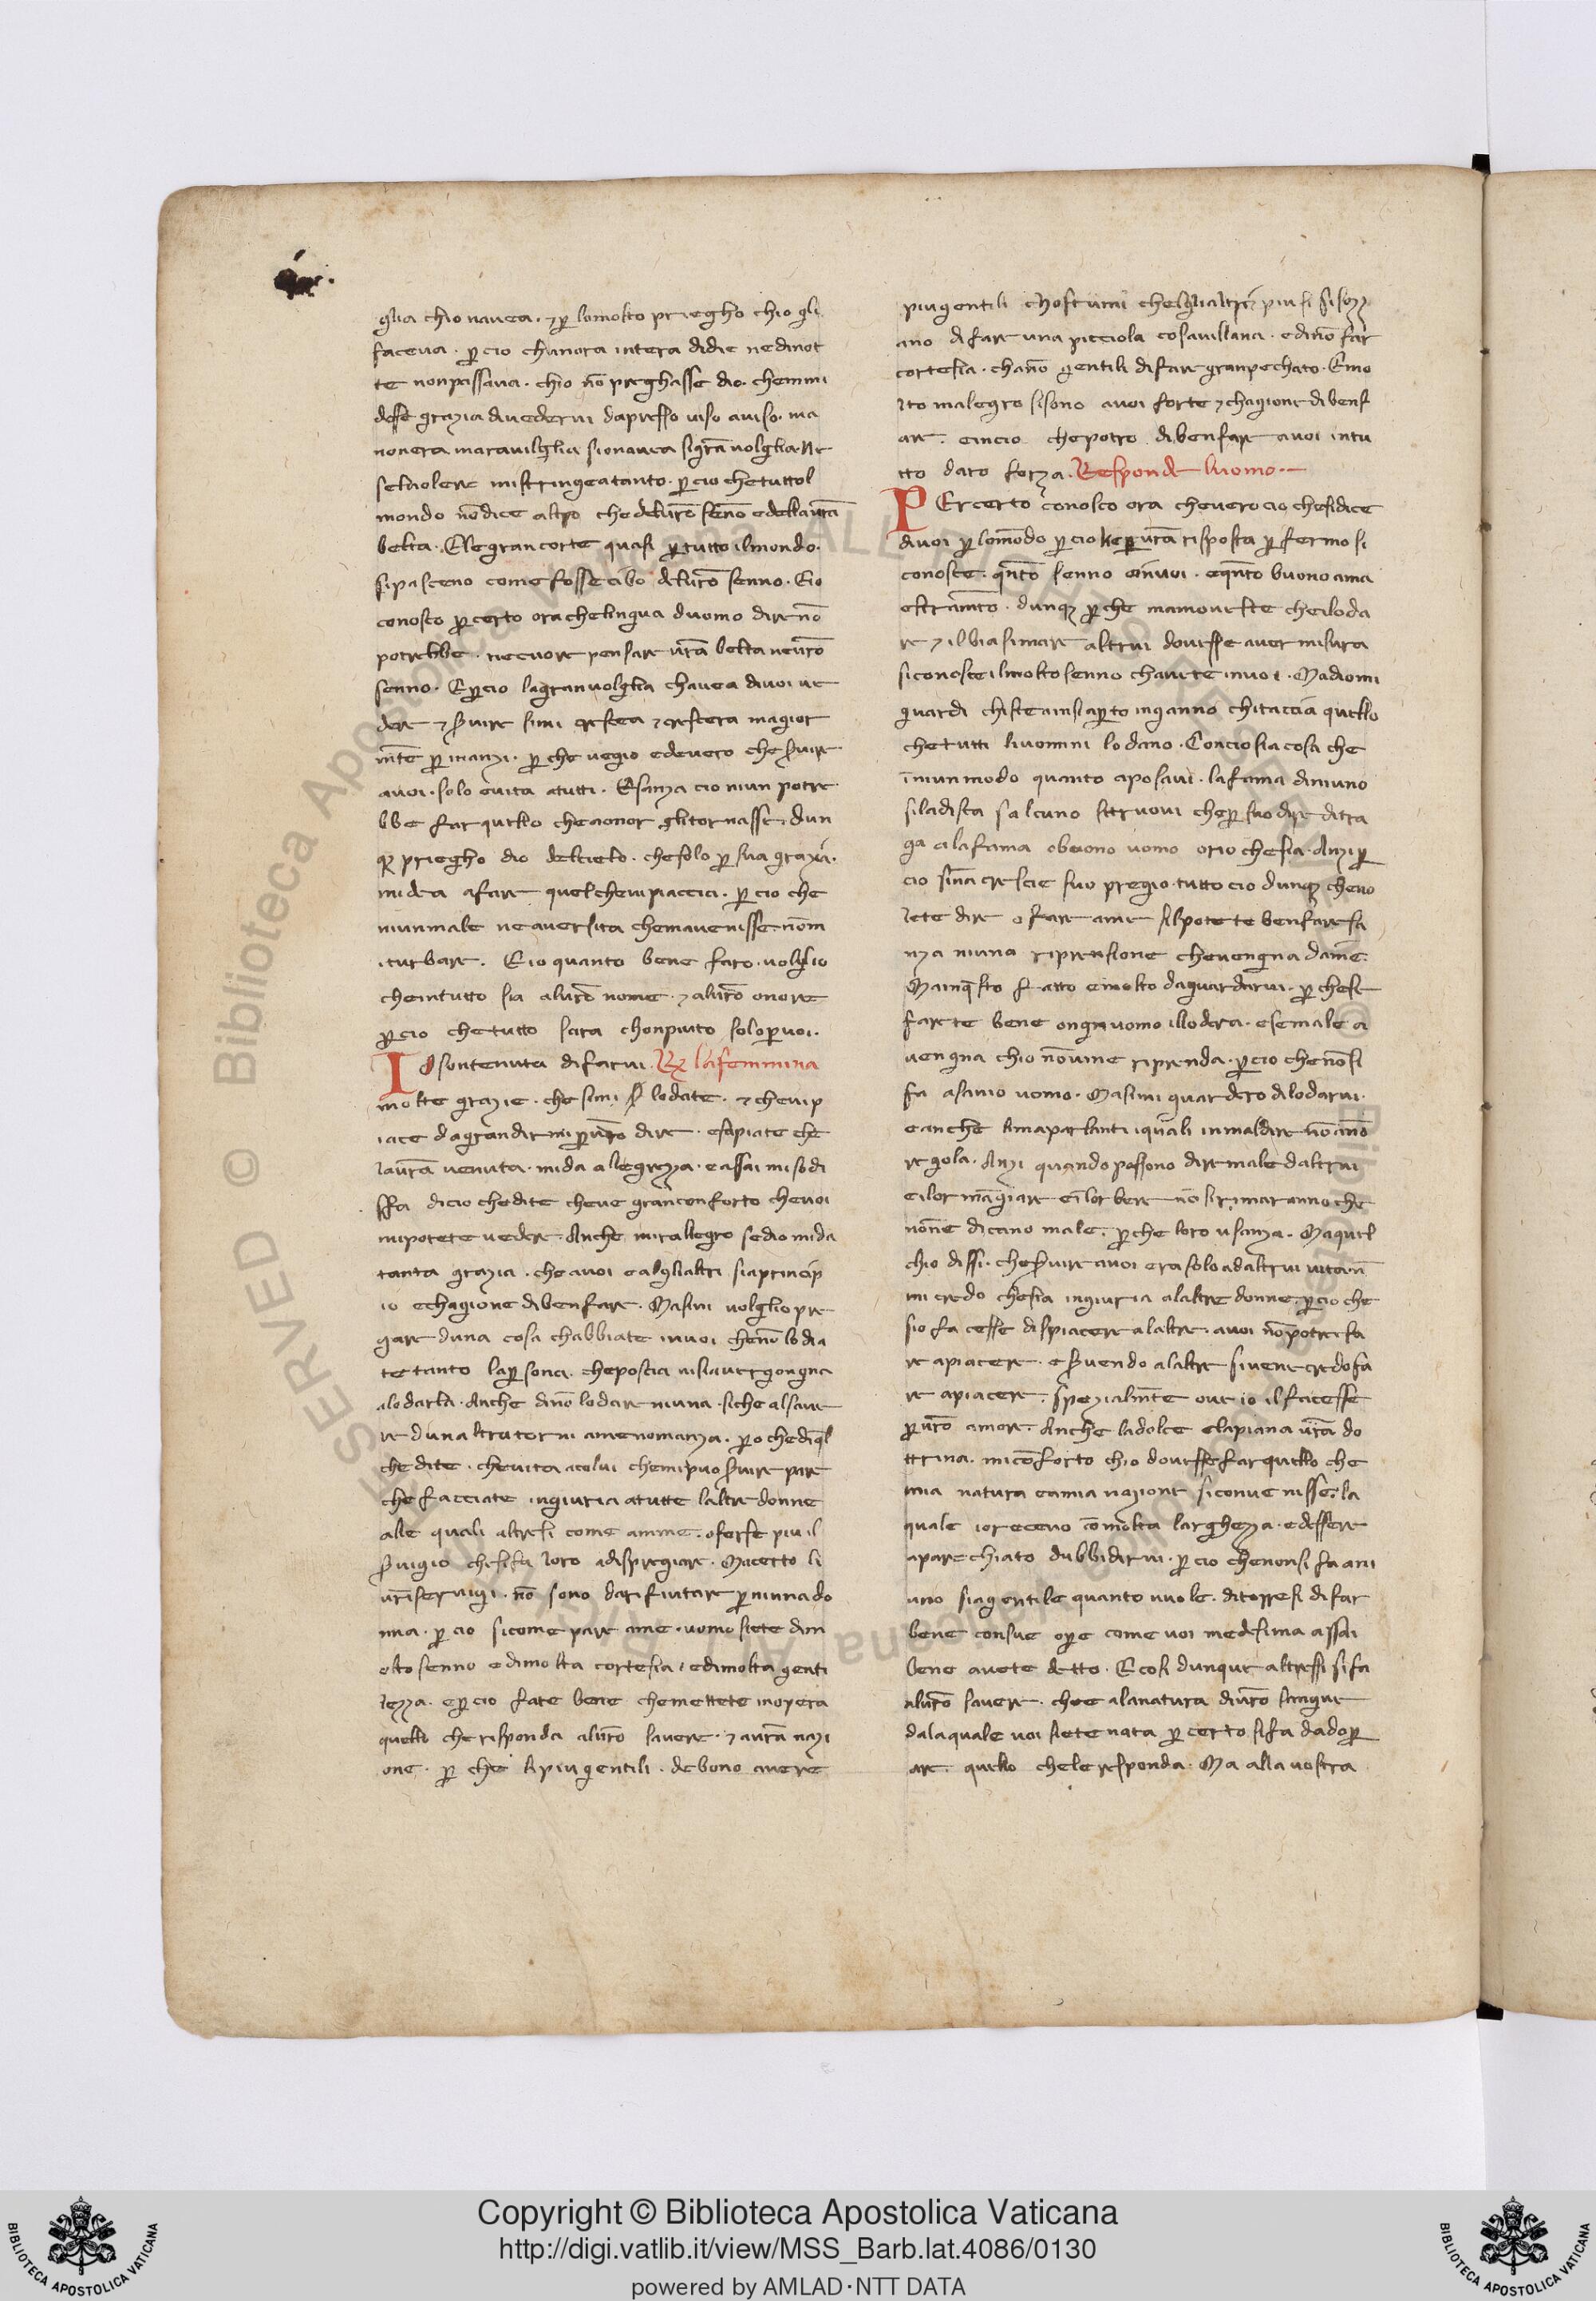 glia chio navea. ⁊ p̱ lomolto priegho chio gli
faceva. p̱cio chanora intera didie nedinot
te nonpassava. chio nō preghasse dio. chemmi
desse grazia divedervi dapresso viso aviso. ma
nonera maraviglia sionavea sigrā volglia. ne
selvolere mistringea tanto. p̱cio chetuttol
mondo nōdice altro che delvr̄o senno edella vr̄a
belta. Elegran corte quasi p̱ tutto ilmondo.
sipasceno come fosse cibo delvr̄o senno. Eio
conosco p̱ certo ora chelingua duomo dire nō
potrebbe. necuore pensare vr̄a belta nevr̄o
senno. Ep̱cio lagranvolglia chavea divoi ve
dere ⁊ s̄vire simi cresscea ⁊ crescera magior
mēte p̱ inanzi. p̱che vegio edevero che s̄vire
avoi. solo evita atutti. Esanza cio niun potre
bbe far quello cheaonor glitornasse. dun
q̄ priegho dio delcielo. chesolo p̱ sua grazia.
midea afare quel chevipiaccia. p̱cio che
niunmale ne aversita chemavenisse. nōm
iturbare. Eio quanto bene faro. volglio
cheintutto sia alvr̄o nome. ⁊ alvr̄o onore
p̱cio chetutto sara chonpiuto solop̱voi.
IO sontenuta difarvi. R̄ lafemmina
molte grazie. che simi lodate. ⁊ chevip
iace dagrandirmi p̱ vr̄o dire. esapiate che
lavr̄a venuta. mida allegrezza. eassai misodi
sfa dicio chedite cheve gran conforto chevoi
mipotete vedere. Anche mirallegro sedio mida
tanta grazia. che avoi ealglialtri siaprincip
io echagione dibenfare. Masimi volglio pre
gare duna cosa chabbiate invoi chenō lodia
te tanto lap̱sona. cheposcia visiavergongna
alodarla. Anche dinō lodare niuna. siche alsave
re dunaltra torni amenomanza. p̱o chediq̄l
che dite. chevita acolui chemipuo s̄vire pare
che facciate ingiuria atutte laltre donne
alle quali altresi come amme. oforse piu il
s̄vigio chesifa loro adispregiare. Macerto li
vr̄i servigi. nō sono darifiutare p̱ niuna do
nna. p̱cio sicome pare ame. uomo siete dim
olto senno edimolta cortesia. edimolta genti
lezza. ep̱cio fate bene chemettete inopera
quello che risponda alvr̄o savere. ⁊ avr̄a nazi
one. p̱che lipiugentili. debono avere
piugentili chostumi chelglialtri piu si sisozz
ano di fare una picciola cosavillana. edinō far
cortesia. chanō gentili difar granpechato. Emo
lto malegro sisono avoi forte ⁊ chagione dibenf
are. eincio chepotro dibenfare avoi intu
tto daro forza. Responde luomo.
PErcerto conosco ora chevero cio chesidice
divoi p̱ lomōdo p̱cio kep̱ vr̄a risposta p̱ fermo si
conosce. qn̄to senno einvoi. eqn̄to buono ama
estramēto. dunq̄ p̱che mamoveste cheiloda
re ⁊ ilbiasimare altrui dovesse aver misura
siconosce ilmolto senno chavete invoi. Madiomi
guardi chisteainsiap̱to inganno chitaccia quello
chetutti livomini lodano. Conciosiacosa che
inniun modo quanto aposavi. lafama diniuno
siladista salcuno struovi chep̱ suo dire ditra
ga alafama obuono uomo orio chesia. Anzi p̱
cio sīna crescie suo pregio. tutto cio dunq̄ chevo
lete dire ofare ame silpotete benfare sa
nza niuna riprensione chevengna dame.
Mainq̄sto fatto emolto daguardarvi. p̱chese
farete bene ongnuomo illodera. esemale a
vengna chio nōvine riprenda. p̱cio chenōsi
fa asavio uomo. Masimi guardero dilodarvi.
eanche limaparlanti iquali inmaldire nōanō
regola. Anzi quando possono diremale daltrui
eilor māgiare eīlor bere nō sirimaranno che
nōne dicano male. p̱che loro usanza. Maquel
chio dissi. ches̄vire avoi era solo adaltrui vita. n̄
mi credo chesia ingiuria alaltre donne. p̱cio che
sio facesse dispiacere alaltre. avoi nōpotrei fa
re apiacere. es̄vendo alaltre sivene credo fa
re apiacere. spezialmēte ove io ilfacesse
p̱ vr̄o amore. Anche ladolce elapiana vr̄a do
ttrina. miconforto chio dovesse far quello che
mia natura eamia nazione siconvenisse. la
quale ioreceuo cōmolta larghezza. edessere
aparechiato dubbidirvi. p̱cio chenonsi fa ani
uno siagentile quanto vuole. ditorresi difar
bene consue op̱e come voi medesima assai
bene avete detto. Ecosi dunque altressi sifa
alvr̄o savere. chee alanatura divr̄o sangue
dalaquale voi siete nata p̱ certo sifa dadop̱
are. quello chele responda. Ma alla vostra
Copyright © Biblioteca Apostolica Vaticana
http://digi.vatlib.it/view/MSS_Barb.lat.4086/0130
powered by AMLAD·NTT DATA
BIBLIOTECA APOSTOLICA VATICANA
BIBLIOTECA APOSTOLICA VATICANA